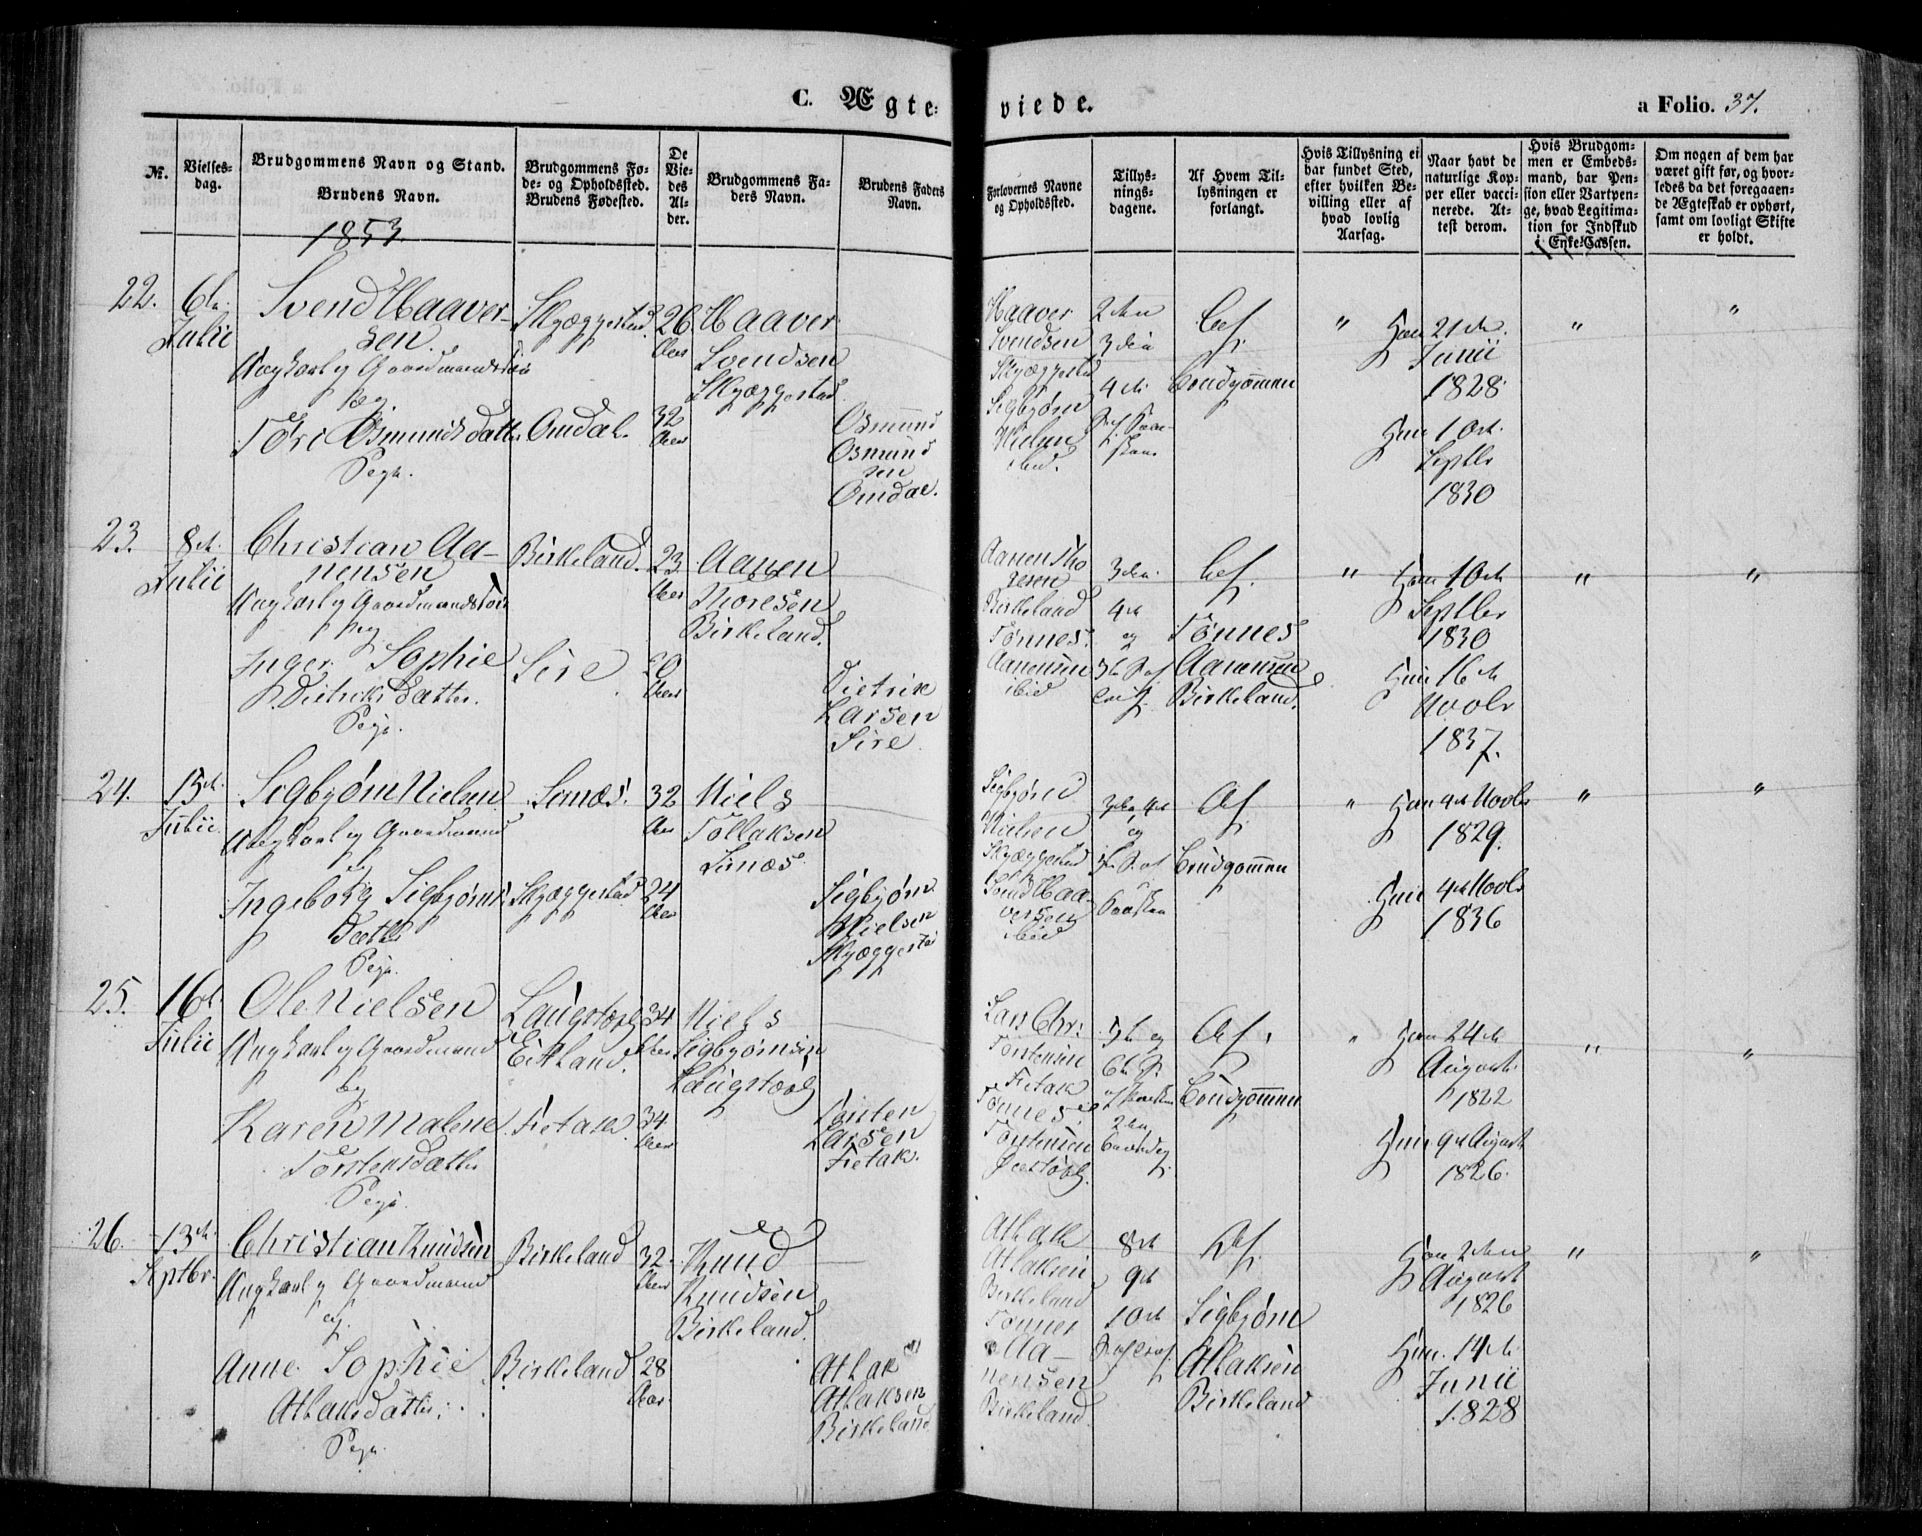 C. Ægteviede. a Folio. 37.
№.
Vielsesdag.
Brudgommens Navn og Stand.
Brudens Navn.
Brudgommens Føde- og Opholdssted.
Brudens Fødested.
De Viedes Alder.
Brudgommens Faders Navn.
Brudens Faders Navn.
Forlovernes Navne og Opholdssted.
Tillysningsdagene.
Af Hvem Tillysningen er forlangt.
Hvis Tillysning ei har fundet Sted, efter hvilken Bevilling eller af hvad lovlig Aarsag.
Naar havt de naturlige Kopper eller vaccinerede. Attest derom.
Hvis Brudgommen er Embedsmand, har Pension eller Vartpenge, hvad Legitimation for Indskud i Enke-Cassen.
Om nogen af dem har været gift før, og hvorledes da det foregaaende Ægteskab er ophørt, samt om lovligt Skifte er holdt.
1853.
22.
6te
Julii
Svend Haaversen
Ungkarl og Gaardmandssøn
og
Tøri Osmunds datter
Pige.
Skjæggestad
Omdal.
26
Aar
32
Aar
Haaver
Svendsen
Skjæggestad.
Osmund
Osmundsen
Omdal.
Haaver
Svendsen
Skjæggestad
Sigbjørn
Nielsen
ibid.
2den
3die
4de
Brudgommen
"
Han 21de
Junii
1828.
Hun 10de
Septbr
1830
"
"
23.
8de
Julii
Christian Aanensen
Ungkarl og Gaardmandssøn
og
Inger Sophie
Dietriks Datter.
Pige.
Birkeland.
Sire
23
Aar
20
Aar
Aanen
Thoresen
Birkeland.
Dietrik
Larsen
Sire.
Aanen Thoresen
Birkeland
Tønnes
Aanensen
ibid
3die
4de
og
Tønnes
Aanensen
Birkeland.
"
Han 10de
Septbr
1830
Hun 16de
Novbr
1837.
"
"
24.
15de
Julii
Sigbjørn Nielsen
Ungkarl og Gaardmand
og
Ingeborg Sigbjørns
Datter
Pige.
Sirnæs.
Skjæggestad
32
Aar
24
Aar
Niels
Tollaksen
Sirnæs.
Sigbjørn
Nielsen
Skjæggestad
Sigbjørn
Nielsen
Skjæggestad
Svend Haaversen
ibid
3die 4de
og
Brudgommen
"
Han 4de Novbr
1829.
Hun 4de Novbr
1836
"
"
25.
16de
Julii
Ole Nielsen
Ungkarl og Gaardmand
og
Karen Malene
Torstensdatter
Pige.
Laugstøel
Eikland.
Fietak
34
Aar
34
Aar
Niels
Sigbjørnsen
Laugstøel
Torsten
Larsen
Fietak.
Lars Chr.
Torstensen
Fietak
Tønnes
Torstensen
5te og
6te
Brudgommen
"
Han 24de
August
1822
Hun 9de August
1826.
"
"
26.
13de
Septbr.
Christian Knudsen
Ungkarl og Gaardmand
og
Anne Sophie
Atlaksdatter.
Pige.
Birkeland
Birkeland
32
Aar
28
Aar
Knud
Knudsen
Birkeland.
Atlak
Atlaksen
Birkeland
Atlak
Atlaksen
Birkeland
Tønnes
Aanensen
Birkeland
8de
9de
10de
Sigbjørn
Atlaksen
Birkeland
Han 2den
August
1826
Hun 14de
Junii
1828
"
"